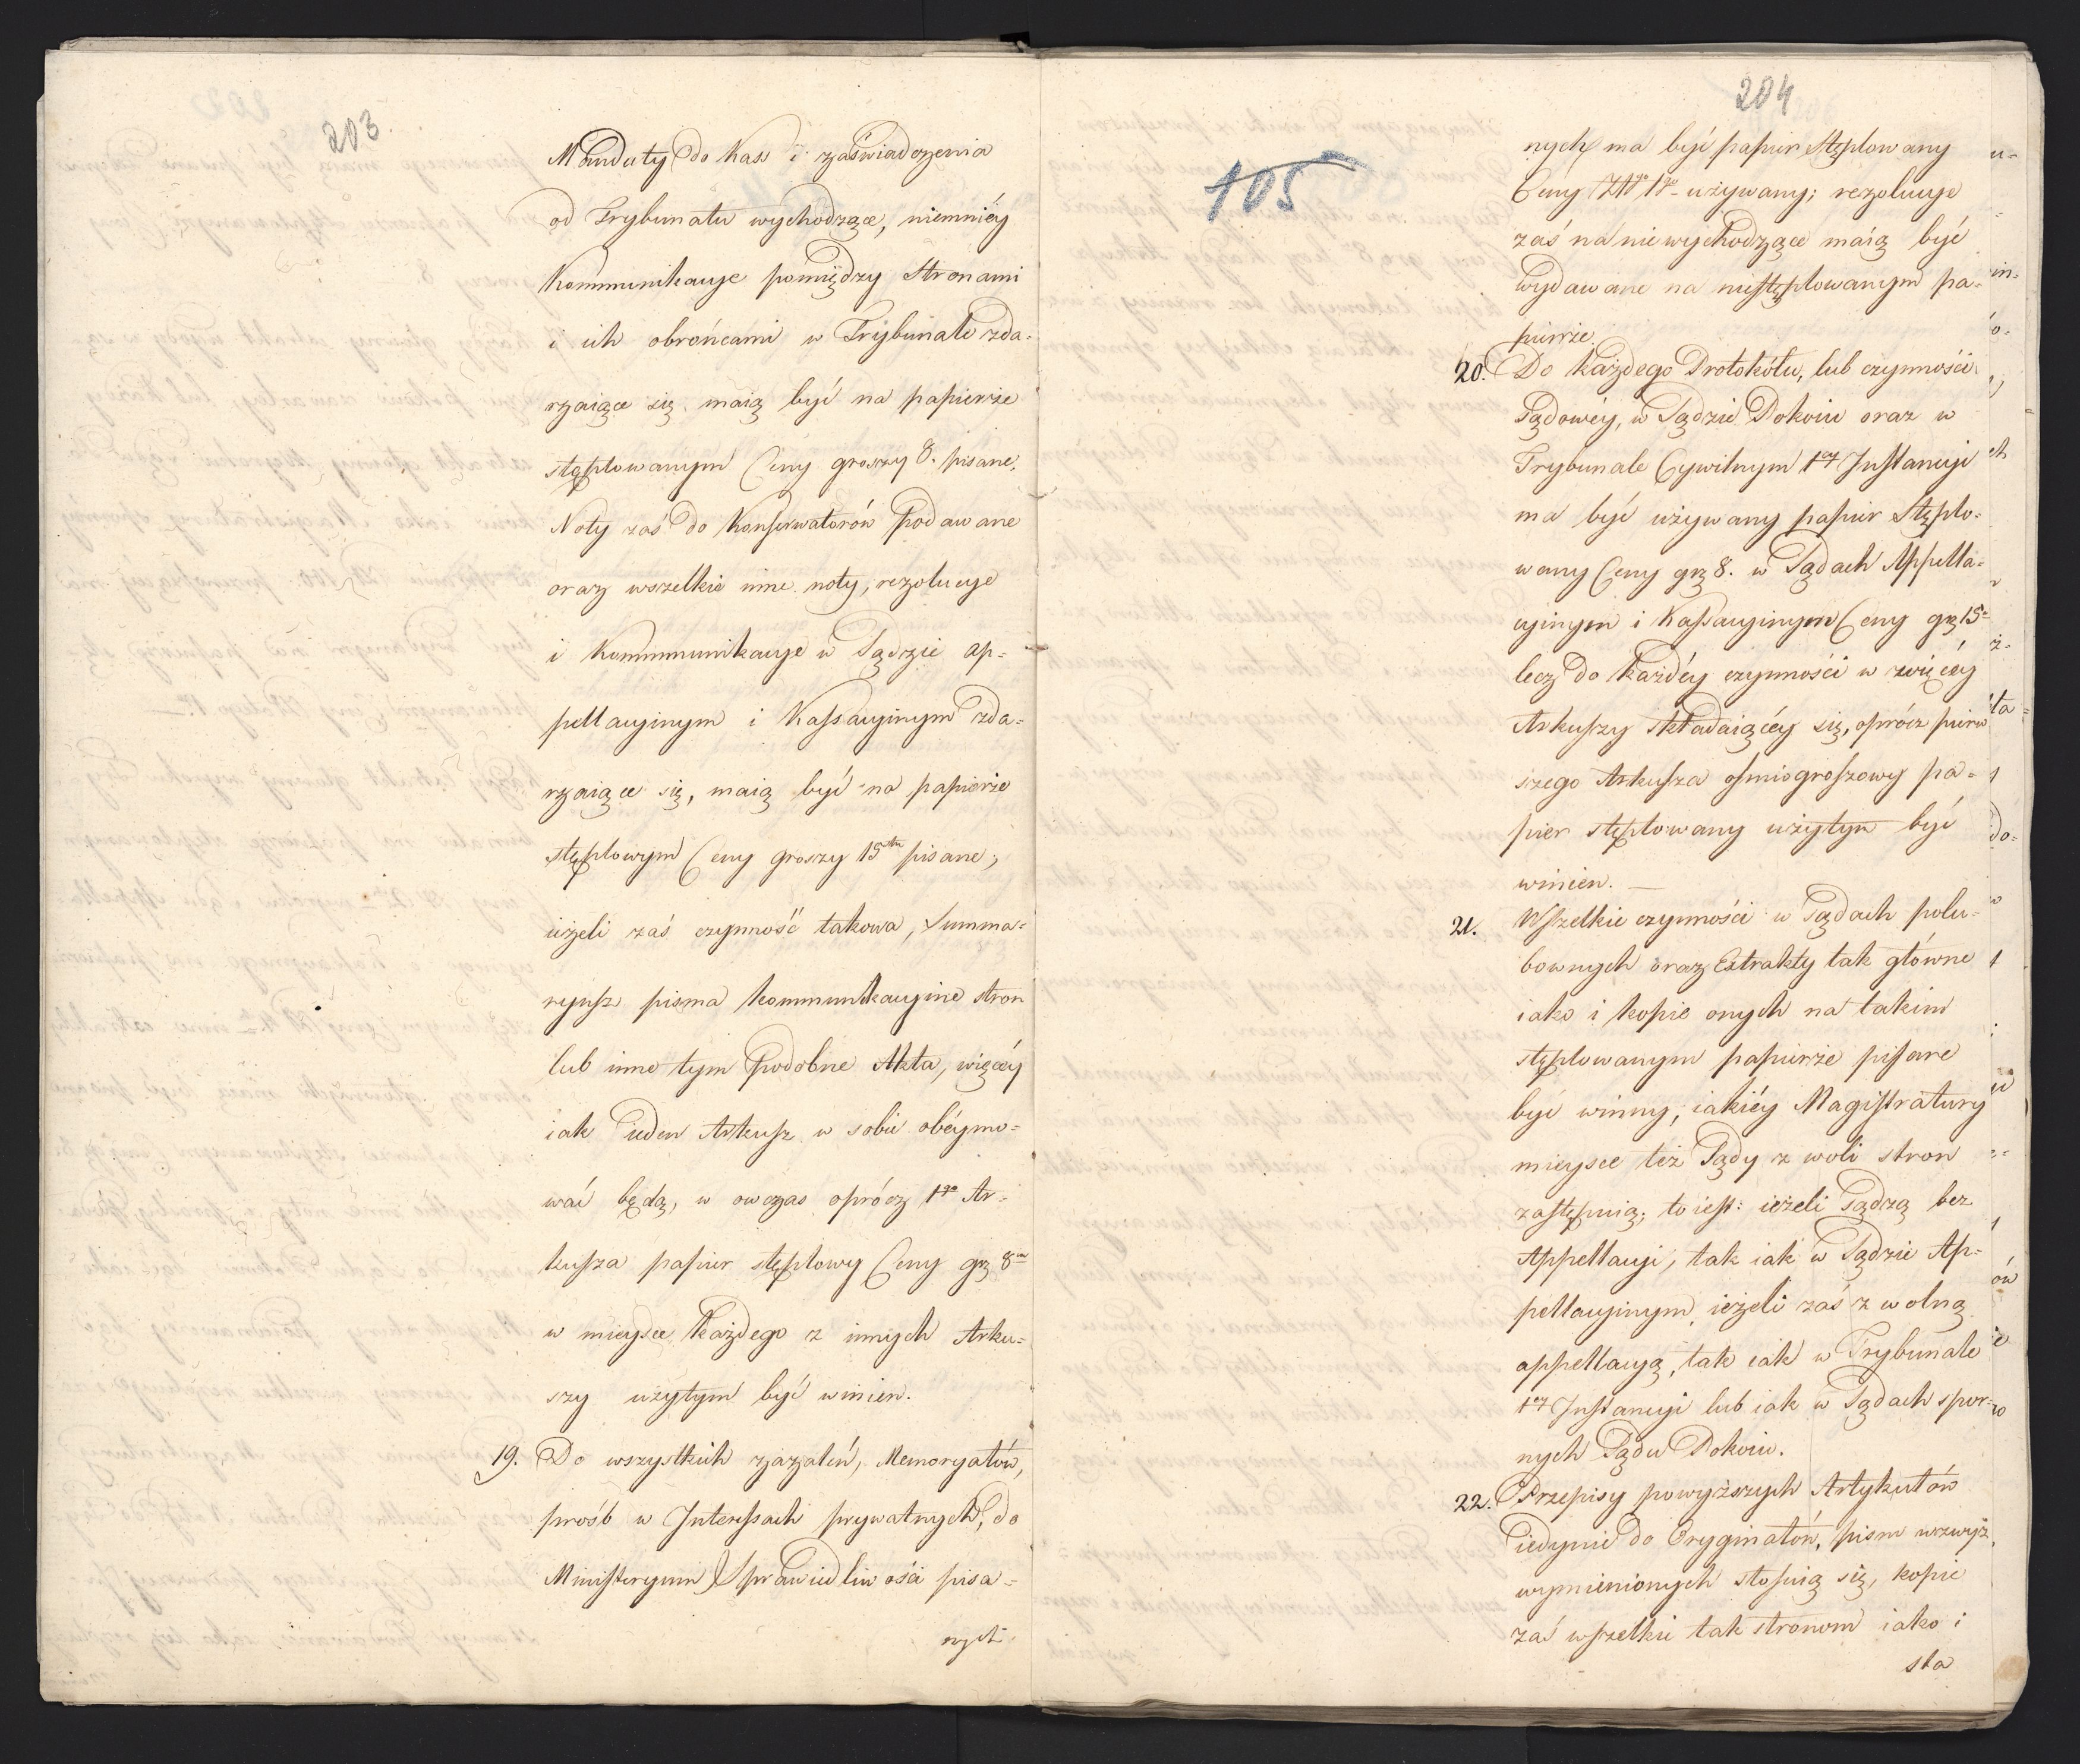 203.
Mandaty do Kass i zaświadczenia
od Trybunału wychodzące, niemniéy
Kommunikacye pomiędzy Stronami
i ich obrońcami w Trybunale zda-
rzaiące się maią być na papierze
stęplowanym Ceny groszy 8. pisane,
Noty zaś do Konserwatorów podawane
oraz wszelkie inne noty, rezolucye
i Kommunikacye w Sądzie ap-
pellacyinym i Kassacyinym zda-
rzaiące się, maią być na papierze
stęplowym Ceny groszy 15stu pisane;
ieżeli zaś czynność takowa, Summa-
ryusz pisma kommunikacyine stron
lub inne tym podobne Akta, więcéy
iak ieden Arkusz w sobie obéymo-
wać będą, w owczas oprócz 1go Ar-
kusza papier stęplowy Ceny gr 8m
w mieysce każdego z innych Arku-
szy użytym być winien.
19. Do wszystkich zażaleń, Memoryałów,
prośb w Interessach prywatnych, do
Ministeryum Sprawiedliwości pisa-
nych
204
105
nych ma być papier Stęplowany
Ceny Złgo 1go używany; rezolucye
zaś na nie wychodzące maią być
wydawane na niestęplowanym pa-
pierze.
20. Do każdego Protokółu, lub czynności
Sądowéy, w Sądzie Pokoiu oraz w
Trybunale Cywilnym 1éy Instancyi
ma być używany papier Stęplo-
wany Ceny gr 8. w Sądach Appella-
cyinym i Kassacyinym Ceny gr 15-
lecz do każdéy czynności w więcéy
Arkuszy składaiącéy się, oprócz pierw
szego Arkusza osmiogroszowy pa-
pier stęplowany użytym być
winien. —
21. Wszelkie czynności w Sądach polu-
bownych oraz Extrakty tak główne
iako i kopie onych na takim
stęplowanym papierze pisane
być winny, iakiéy Magistratury
mieysce też Sądy z woli stron
zastępuią; to iest: ieżeli Sądzą bez
Appellacyi, tak iak w Sądzie Ap-
pellacyinym, ieżeli zaś z wolną
appellacyą, tak iak w Trybunale
1éy Instancyi lub iak w Sądach spor-
nych Sądu Pokoiu.
22. Przepisy powyższych Artykułów
iedynie do Oryginałów, pism wzwyż
wymienionych stosuią się, kopie
zaś wszelkie tak stronom iako i
sta